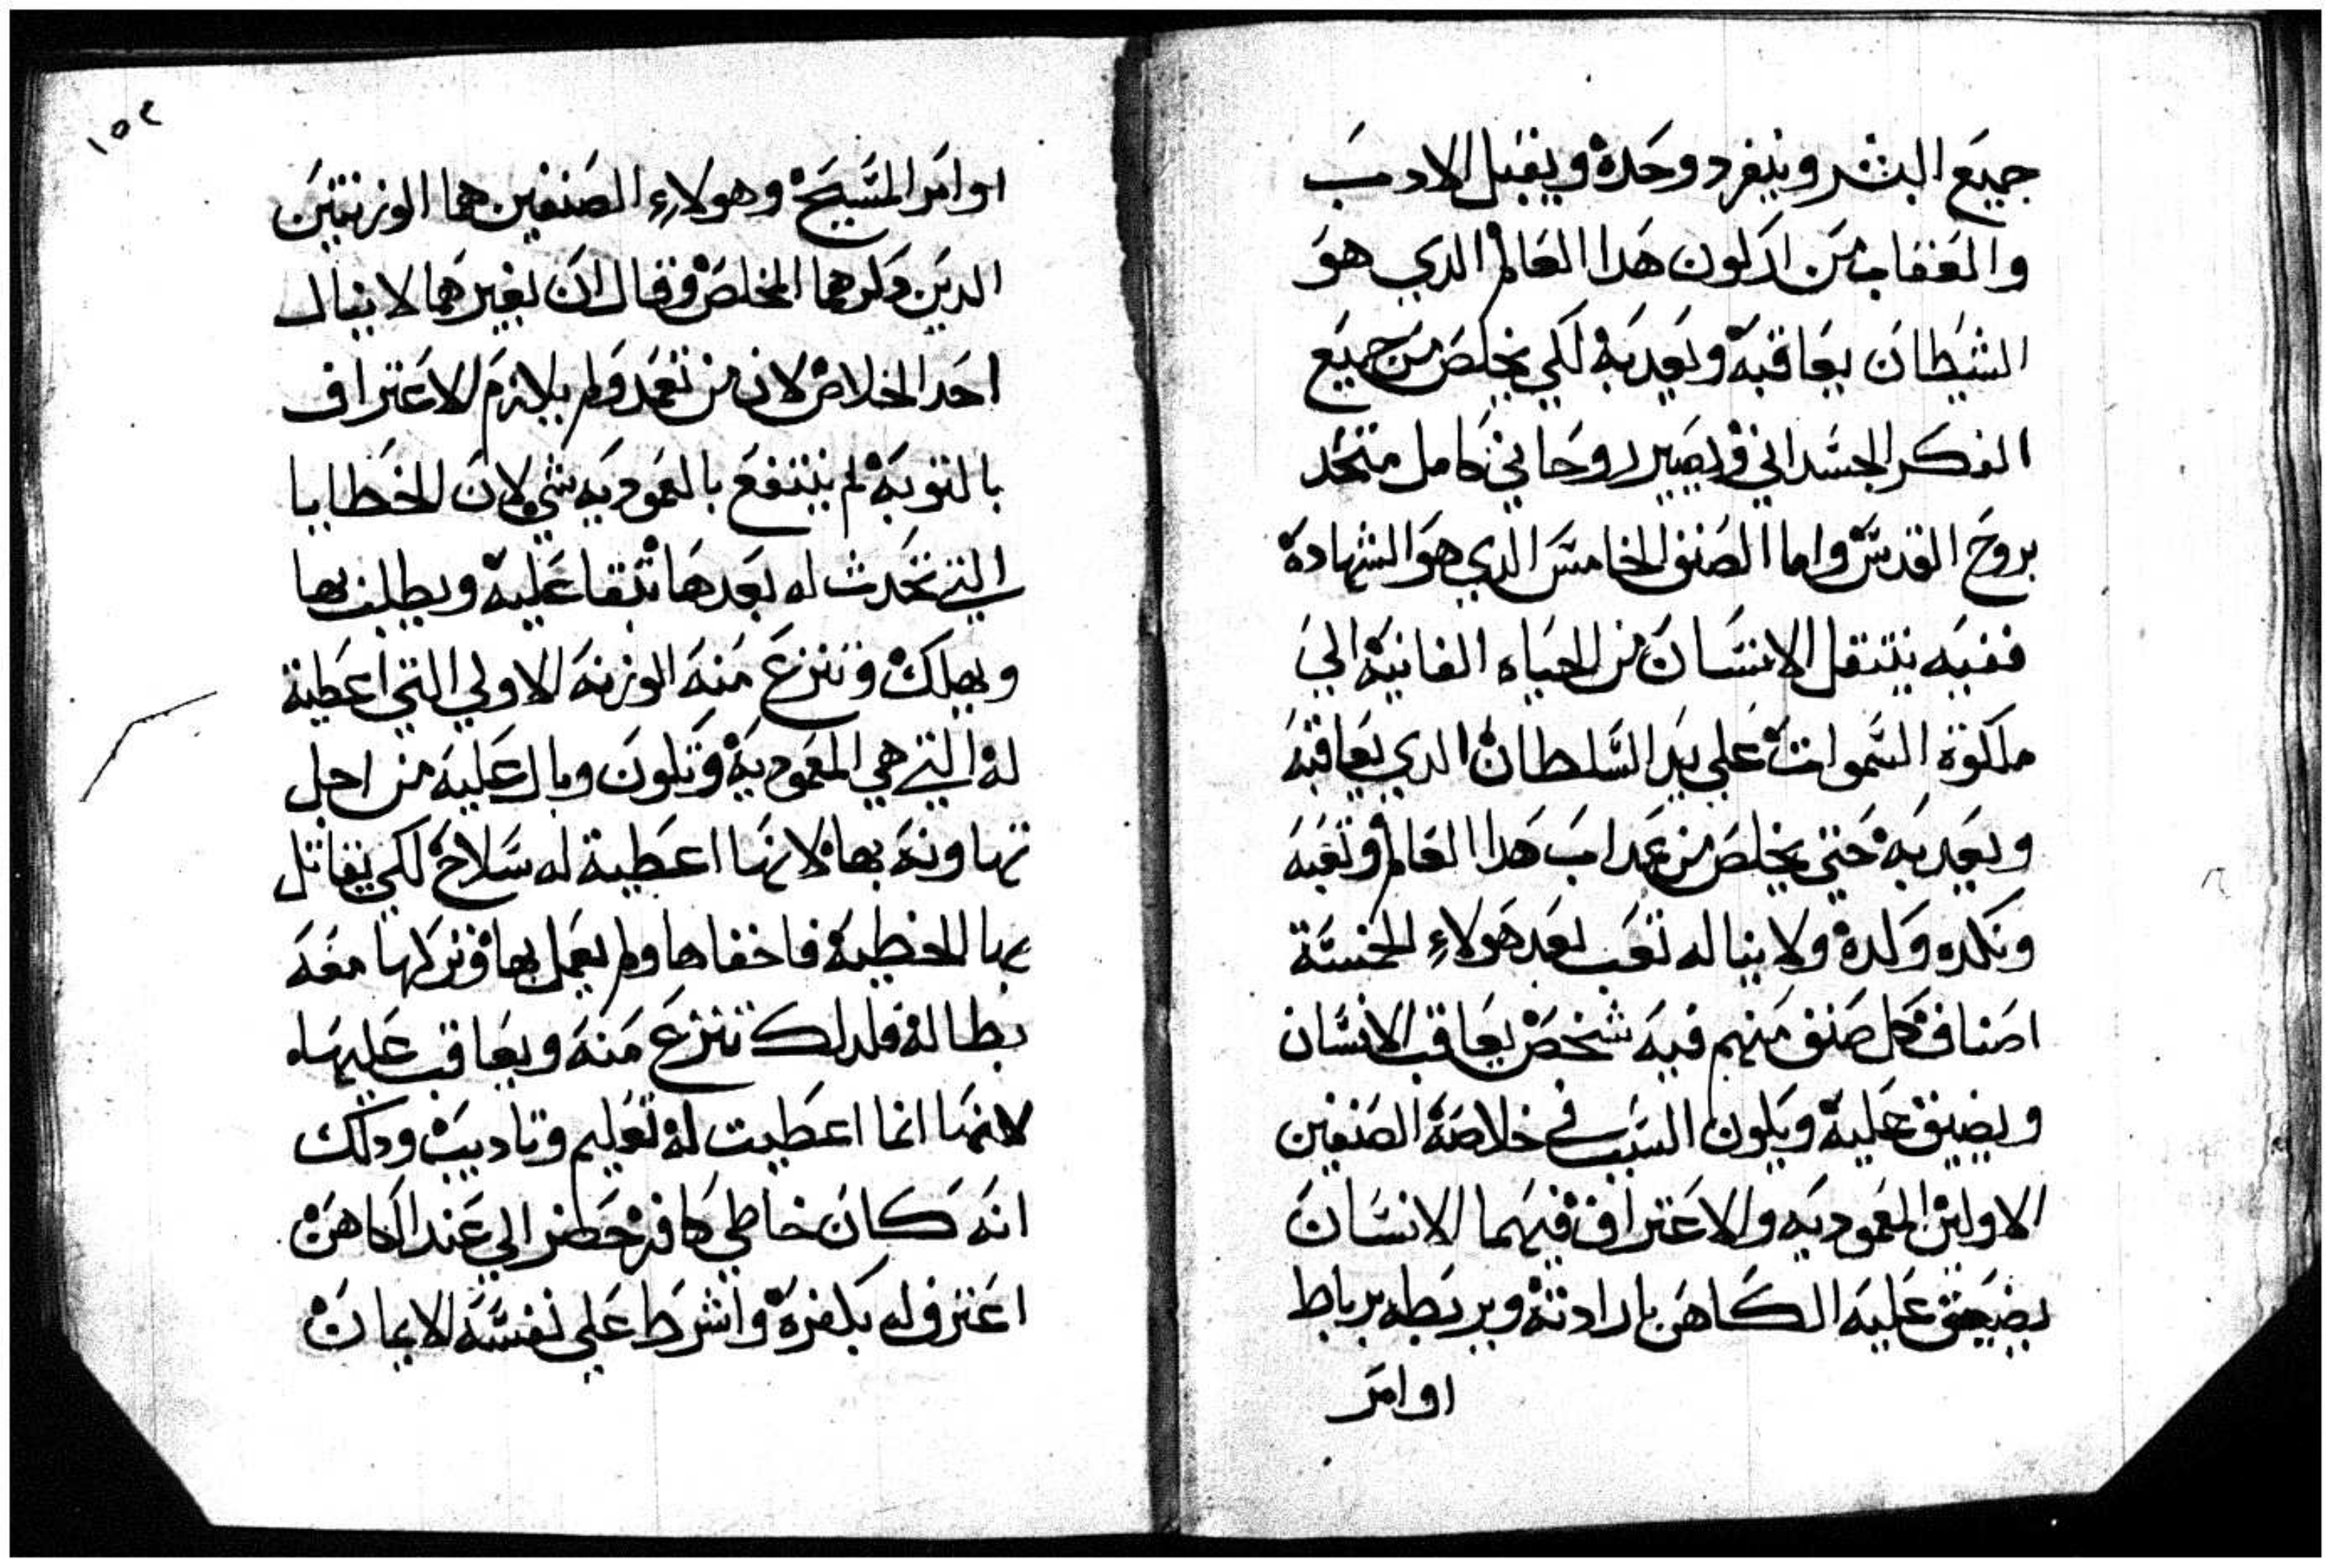 جميع البشر وينفرد وحده ويقبل الادب
والعقاب من اركون هدا العالم الدي هو
الشيطان يعاقبه ويعدبه لكي يخلص من جميع
الفكر الجسداني ويصير روحاني كامل متحد
بروح القدس واما الصنف الخامس الدي هو الشهادة
ففيه ينتقل الانسان من الحياه الفانية الي
ملكوة السموات علي يد السلطان الدي يعاقبه
ويعدبه حتي يخلص من عداب هدا العالم وتعبه
ونكده وكده ولا يناله تعب بعد هولاء الخمسة
اصناف كل صنف منهم فيه شخص يعاقب الانسان
ويضيق عليه ويكون السبب في خلاصة الصنفين
الاولين المعموديه والاعتراف فيهما الانسان
يضيق عليه الكاهن بارادته ويربطه برباط
اوامر
١٥٢
اوامر المسيح وهولاء الصنفين هما الوزنتين
الدين دكرهما المخلص وقال ان بغيرهما لا ينال
احد الخلاص لان من تعمد ولم يلازم الاعتراف
بالتوبة لم ينتفع بالمعموديه شي لان الخطايا
التي تحدث له بعدها تبقا عليه ويطلب بها
ويهلك وتنزع منه الوزنه الاولي التي اعطية
له التي هي المعمودية وتكون وبال عليه من اجل
تهاونه بها لانها اعطية له سلاح لكي يقاتل
بها الخطية فاخفاها ولم يعمل بها وتركها معه
بطالة فلدلك تنزع منه ويعاقب عليها
لانها انما اعطيت له تعليم وتاديب ودلك
انه كان خاطي كافر حضر الي عند الكاهن
اعترف له بكفره واشرط علي نفسه الايمان